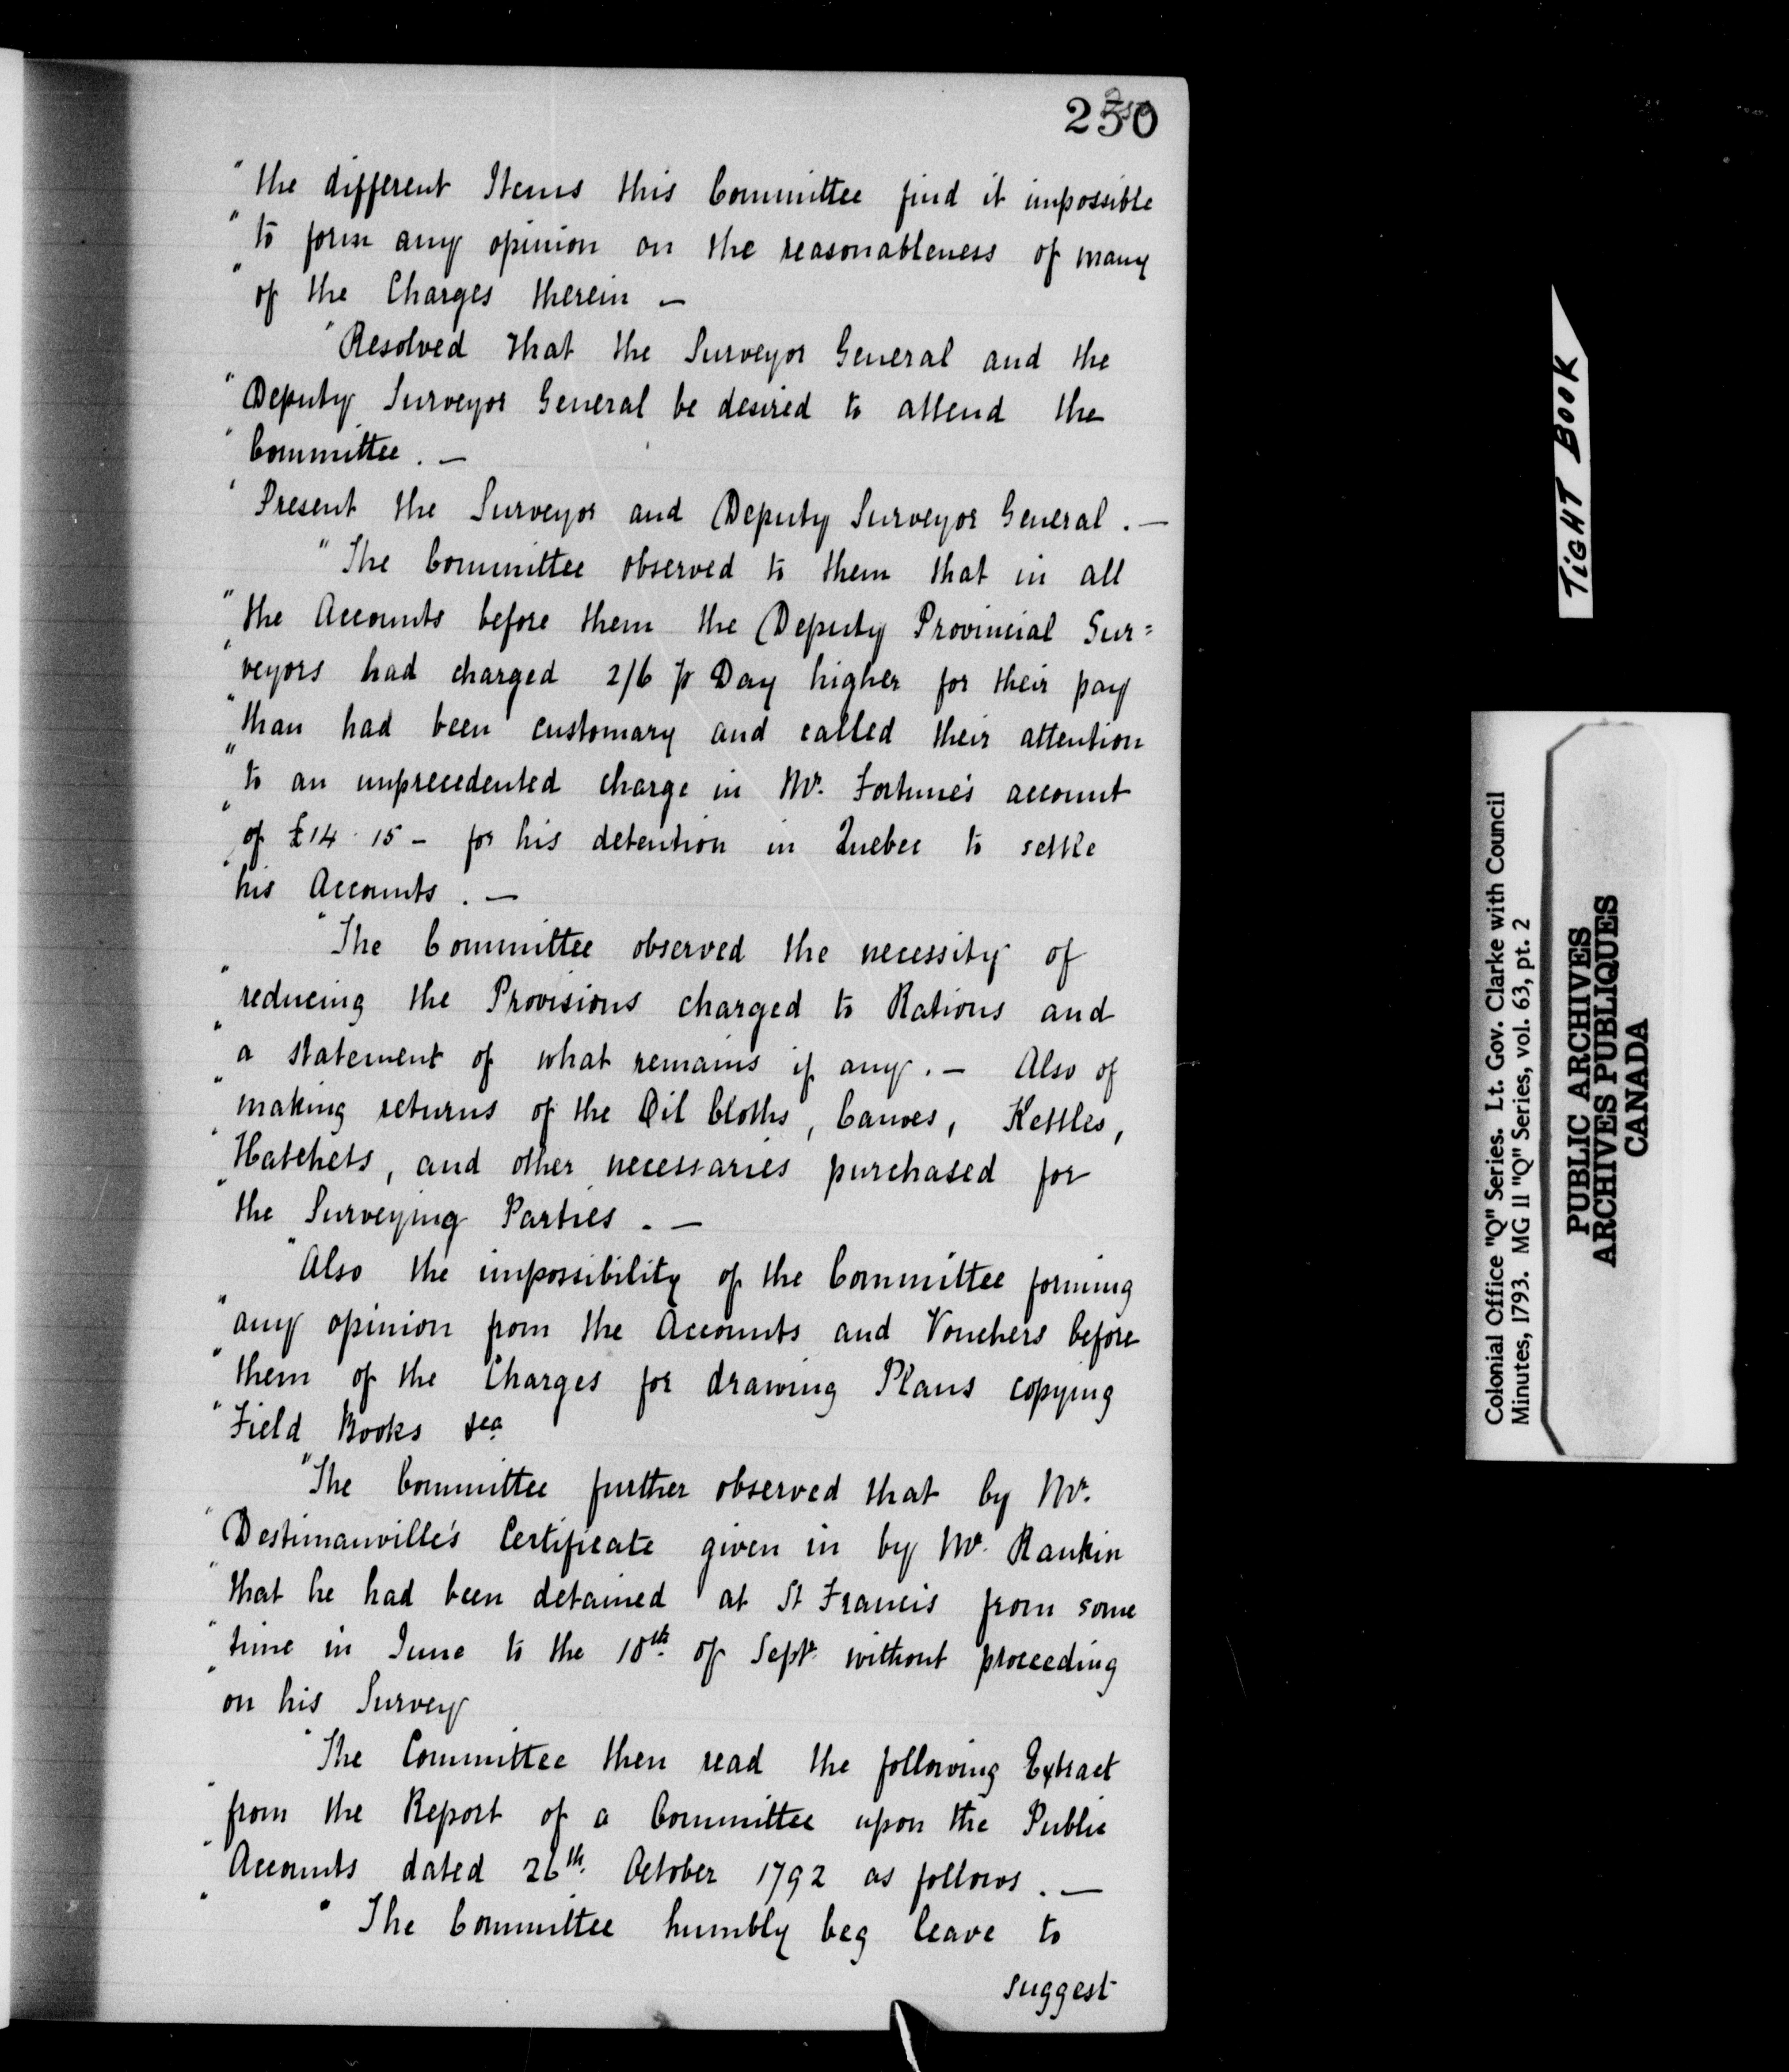 250
"the different Items this Committee find it impossible
"to form any opinion on the reasonableness of many
"of the Charges therein —
"Resolved that the Surveyor General and the
"Deputy Surveyor General be desired to attend the
"Committee . —
"Present the Surveyor and Deputy Surveyor General . —
"The Committee observed to them that in all
"the Accounts before them the Deputy Provincial Sur=
"veyors had charged 2/6 p Day higher for their pay
"than had been customary and called their attention
"to an unprecedented charge in Mr. Fortune's account
"of £14 . 15 – for his detention in Quebec to settle
"his Accounts . —
"The Committee observed the necessity of
"reducing the Provisions charged to Rations and
"a statement of what remains if any . — Also of
"making returns of the Oil Cloths, Canoes, Kettles,
"Hatchets, and other necessaries purchased for
"the Surveying Parties . —
"Also the impossibility of the Committee forming
"any opinion from the Accounts and Vouchers before
"them of the Charges for drawing Plans copying
"Field Books &ca
"The Committee further observed that by Mr.
"Destimanville's Certificate given in by Mr. Rankin
"that he had been detained at St Francis from some
"time in June to the 10th. of Sept. without proceeding
"on his Survey
"The Committee then read the following Extract
"from the Report of a Committee upon the Public
"Accounts dated 26th. October 1792 as follows . —
" "The Committee humbly beg leave to
suggest
TIGHT BOOK
Colonial Office "Q" Series. Lt. Gov. Clarke with Council
Minutes, 1793. MG 11 "Q" Series, vol. 63, pt. 2
PUBLIC ARCHIVES
ARCHIVES PUBLIQUES
CANADA